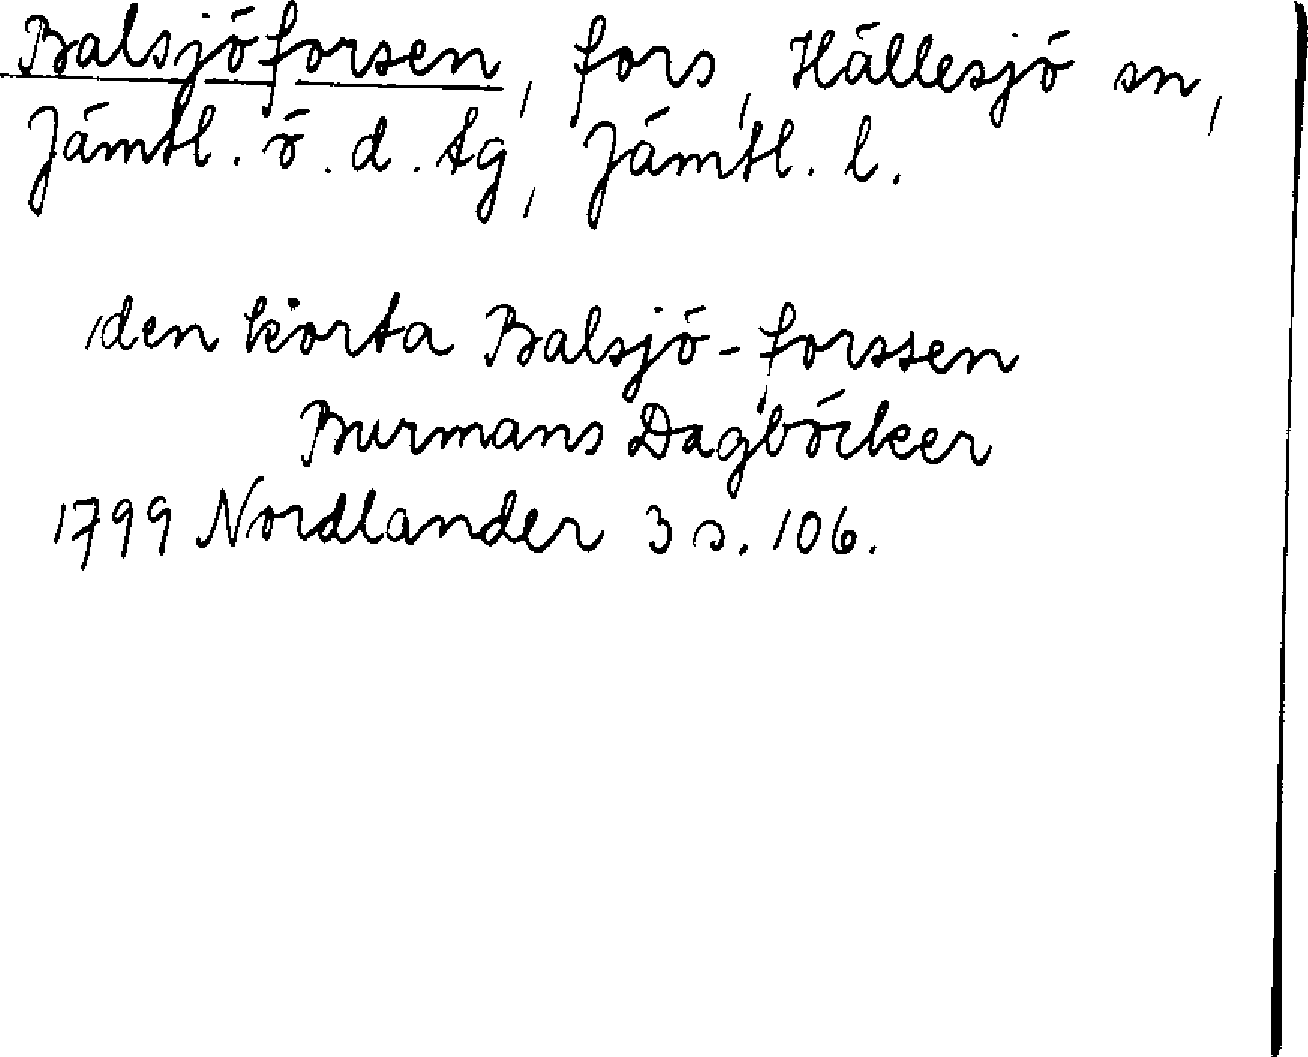 Balsjöforsen, fors, Hällesjö sn,
Jämtl. ö. d. tg, Jämtl. l.
den korta Balsjö-forssen
Burmans Dagböcker
1799 Nordlander 3 s. 106.